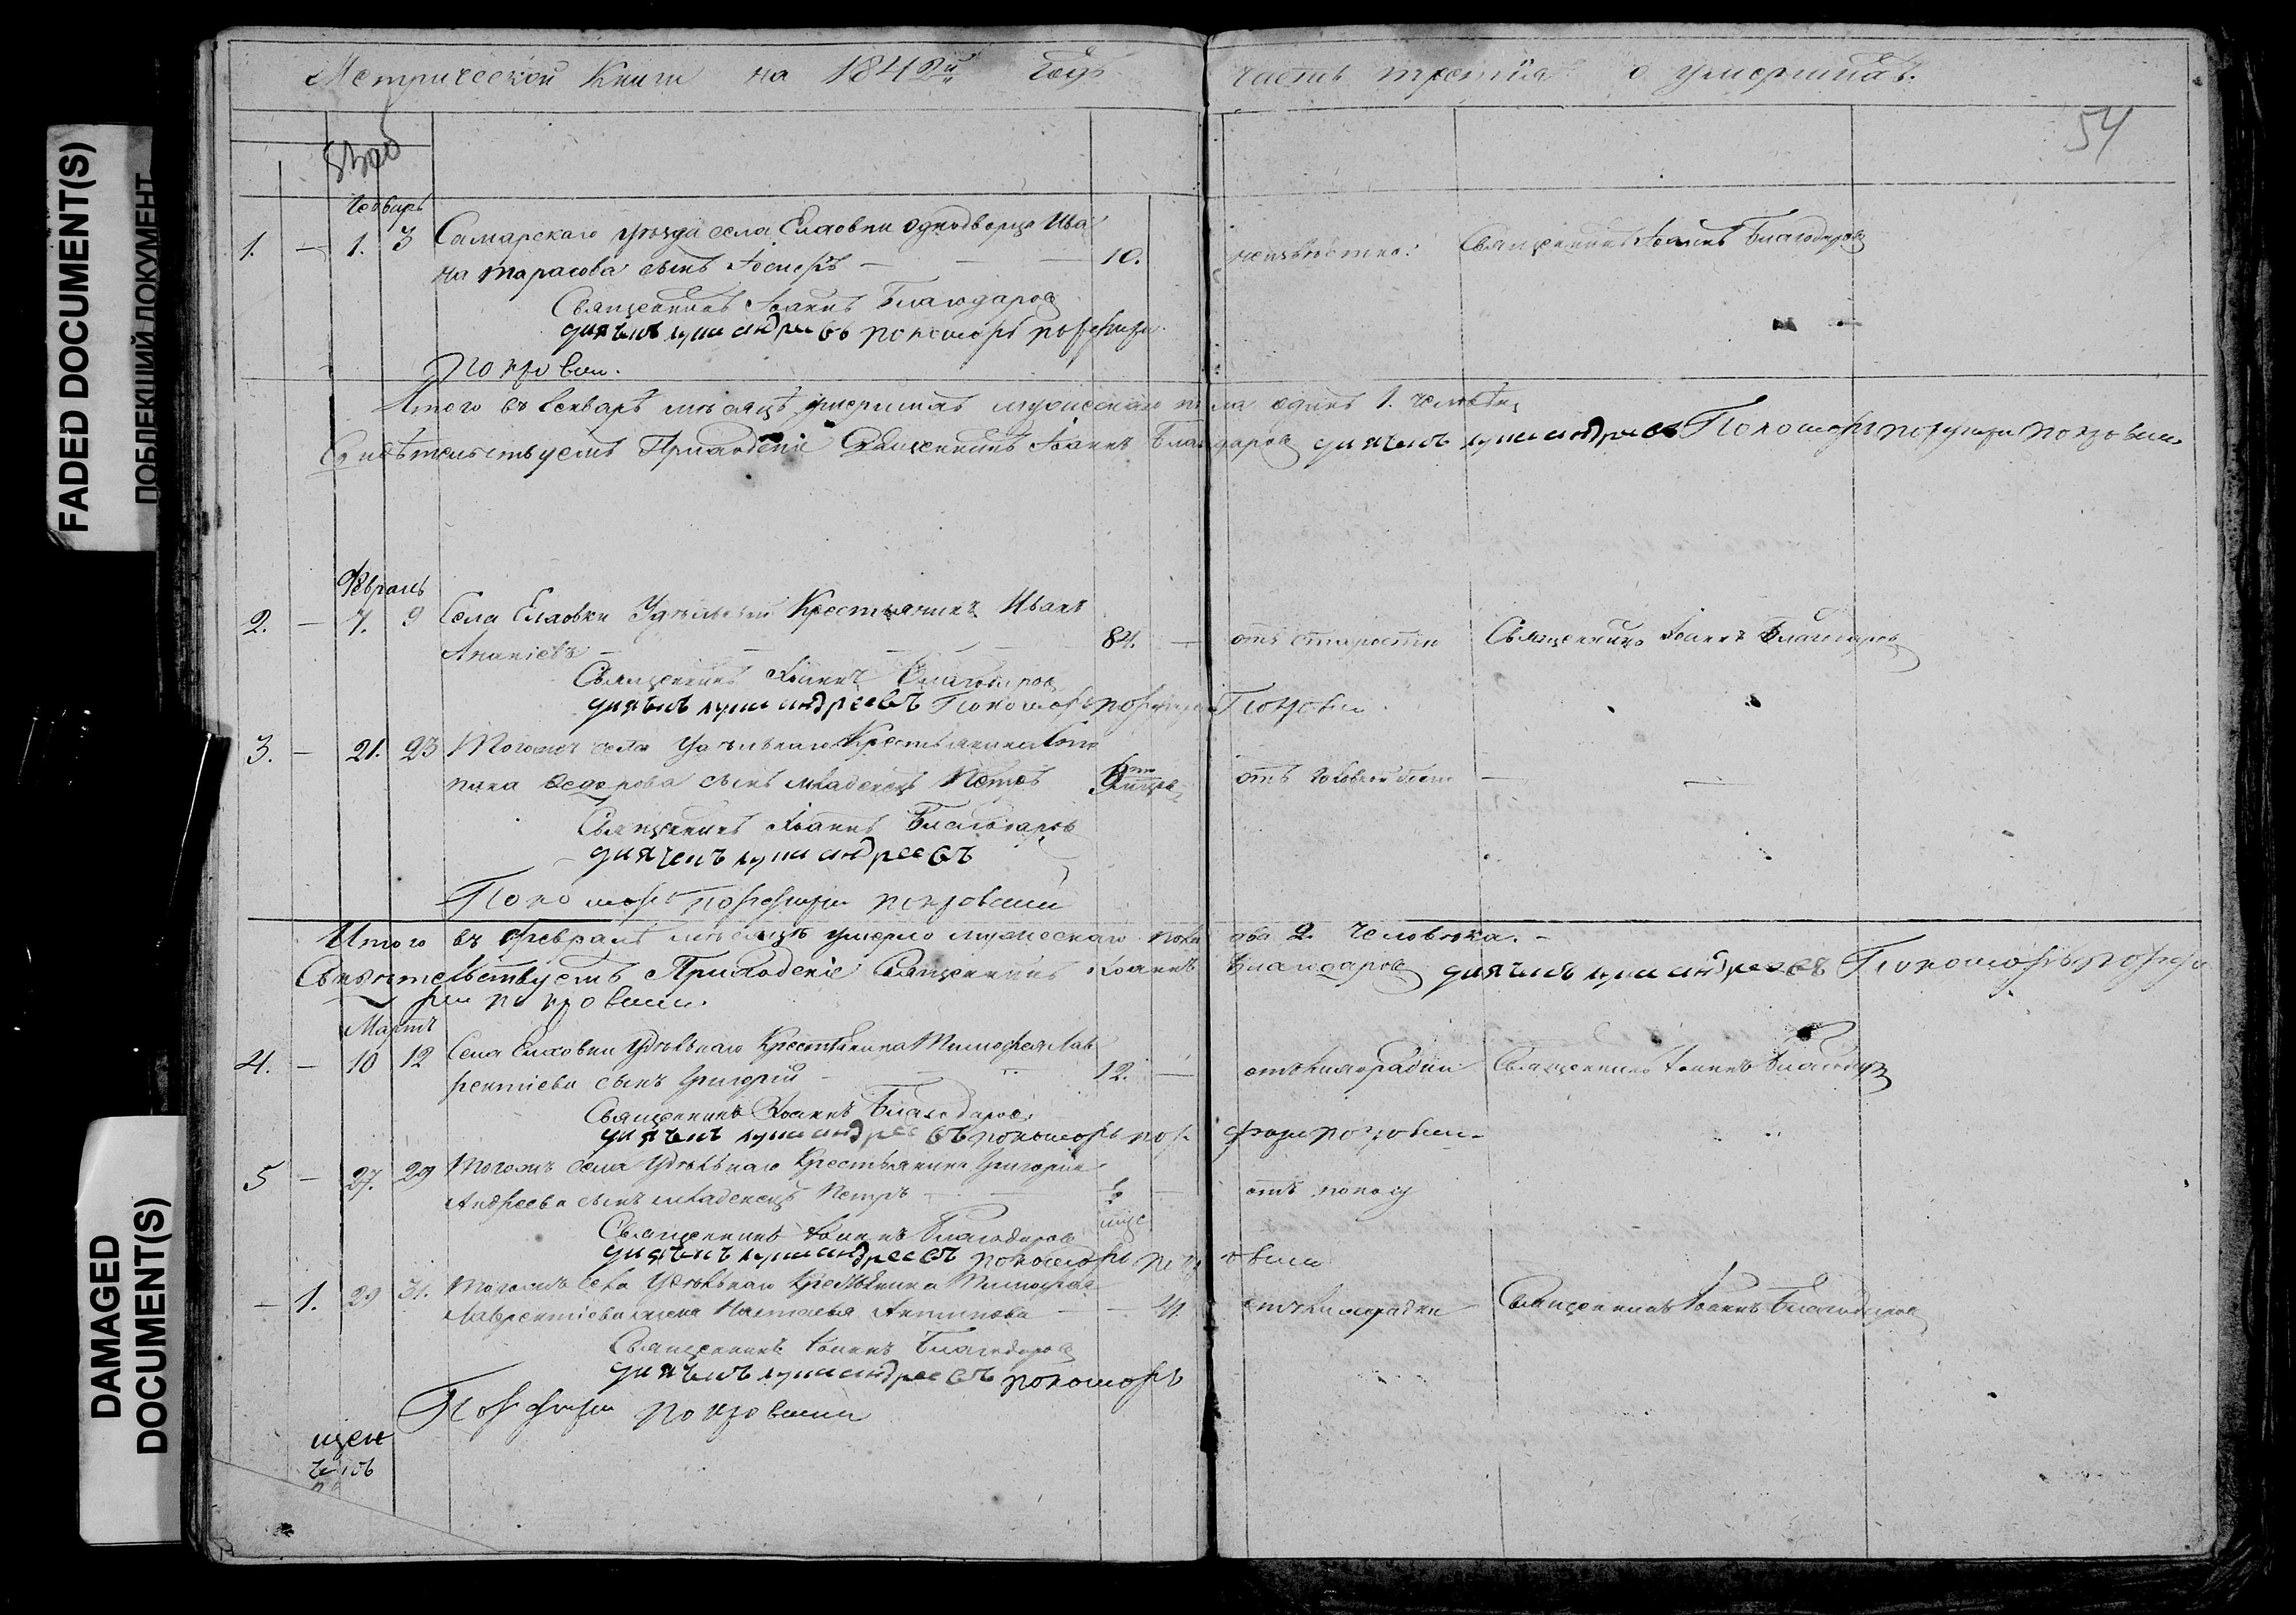 FADED DOCUMENT(S)
ПОБЛЕКШИЙ ДОКУМЕНТ
DAMAGED DOCUMENT(S)
Метрической Книги на 1842й Годъ часть третия о умершихъ.
54
Генварь
1. — 1. 3 Самарскаго уѣзда села Елховки однодворца Ива
на Тарасова сынъ — 10. неизвѣстно. Священникъ Иоаннъ Благодаровъ
Священникъ Иоаннъ Благодаровъ
дьячекъ лука андреевъ пономарь порфири
покровски.
Итого въ Генварѣ мѣсяцѣ умершихъ мужескаго пола одинъ 1. человѣкъ
Свидѣтельствуемъ Приходскіе Священникъ Иоаннъ Благодаровъ дьячекъ лука андреевъ Пономарь порфири покровски
Февраль
2. — 7. 9 Села Елховки Удѣльный Крестьянинъ Иванъ
Ананіевъ — 84. — отъ старости Священникъ Иоаннъ Благодаровъ
Священникъ Иоаннъ Благодаровъ
дьячекъ лука андреевъ Пономарь порфири Покровски
3. — 21. 23 Тогожъ села Удѣльнаго Крестьянина
Федорова сынъ младенецъ отъ — —
Священникъ Иоаннъ Благодаровъ
дьячекъ лука андреевъ
Пономарь порфири покровский
Итого въ Февралѣ мѣсяцѣ умерло мужескаго пола два 2. человѣка. —
Свидѣтельствуемъ Приходскіе Священникъ Иоаннъ Благодаровъ дьячекъ лука андреевъ Пономарь порфи
ри покровски.
Мартъ
4. — 10 12 Села Елховки Удѣльнаго Крестьянина Тимофея Лав
рентіева сынъ Григорій 12. — отъ лихорадки Священникъ Иоаннъ Благодаровъ
Священникъ Иоаннъ Благодаровъ
дьячекъ лука андреевъ пономарь порфири покровски
5 — 27. 29 Тогожъ села Удѣльнаго Крестьянина Григорія
Андреева сынъ младенецъ Петръ — отъ поносу
Священникъ Иоаннъ Благодаровъ
дьячекъ лука андреевъ пономарь
— 1. 29 31. Тогожъ села Удѣльнаго Крестьянина Тимофея
Лаврентіева жена Наталья Антипова — 41. отъ лихорадки Священникъ Иоаннъ Благодаровъ
Священникъ Иоаннъ Благодаровъ
дьячекъ лука андреевъ пономарь
Порфири покровский
щен
чекъ